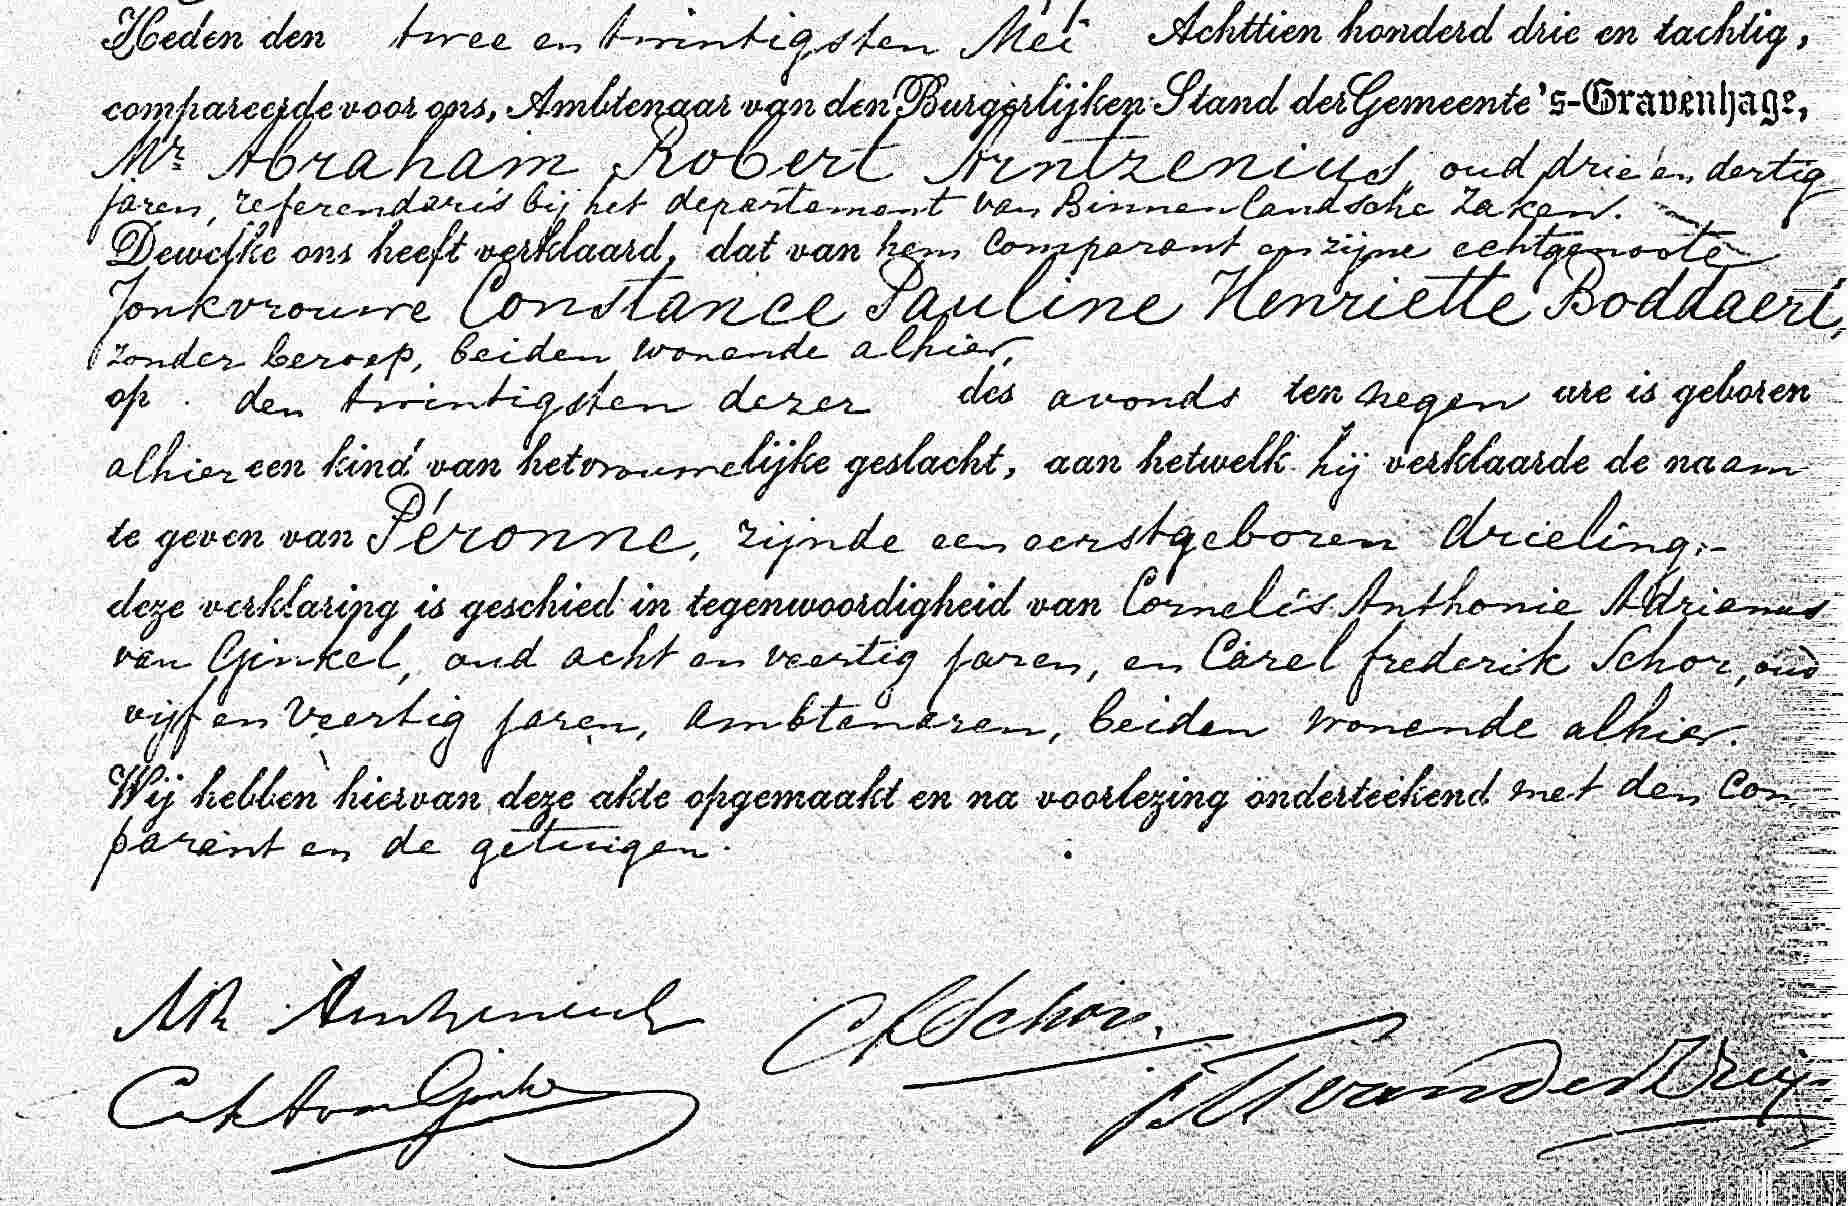 Heden den twee en twintigsten Mei Achttien honderd drie en tachtig,
compareerde voor ons, Ambtenaar van den Burgerlijken Stand der Gemeente 's-Gravenhage,
Mr. Abraham Robert Arntzenius, oud drie en dertig
jaren, referendaris bij het departement van Binnenlandsche Zaken.
Dewelke ons heeft verklaard, dat van hem comparant en zijne echtgenoote
Jonkvrouwe Constance Pauline Henriette Boddaert,
zonder beroep, beiden wonende alhier,
op den twintigsten dezer des avonds ten negen ure is geboren
alhier een kind van het vrouwelijke geslacht, aan hetwelk hij verklaarde de naam
te geven van Péronne, zijnde een eerstgeboren drieling;-
deze verklaring is geschied in tegenwoordigheid van Cornelis Anthonie Adrianus
van Ginkel, oud acht en veertig jaren, en Carel frederik Schor, oud
vijf en veertig jaren, ambtenaren, beiden wonende alhier.
Wij hebben hiervan deze akte opgemaakt en na voorlezing onderteekend met den com
parant en de getuigen.
AR Arntzenius CFSchor.
CAA van Ginkel